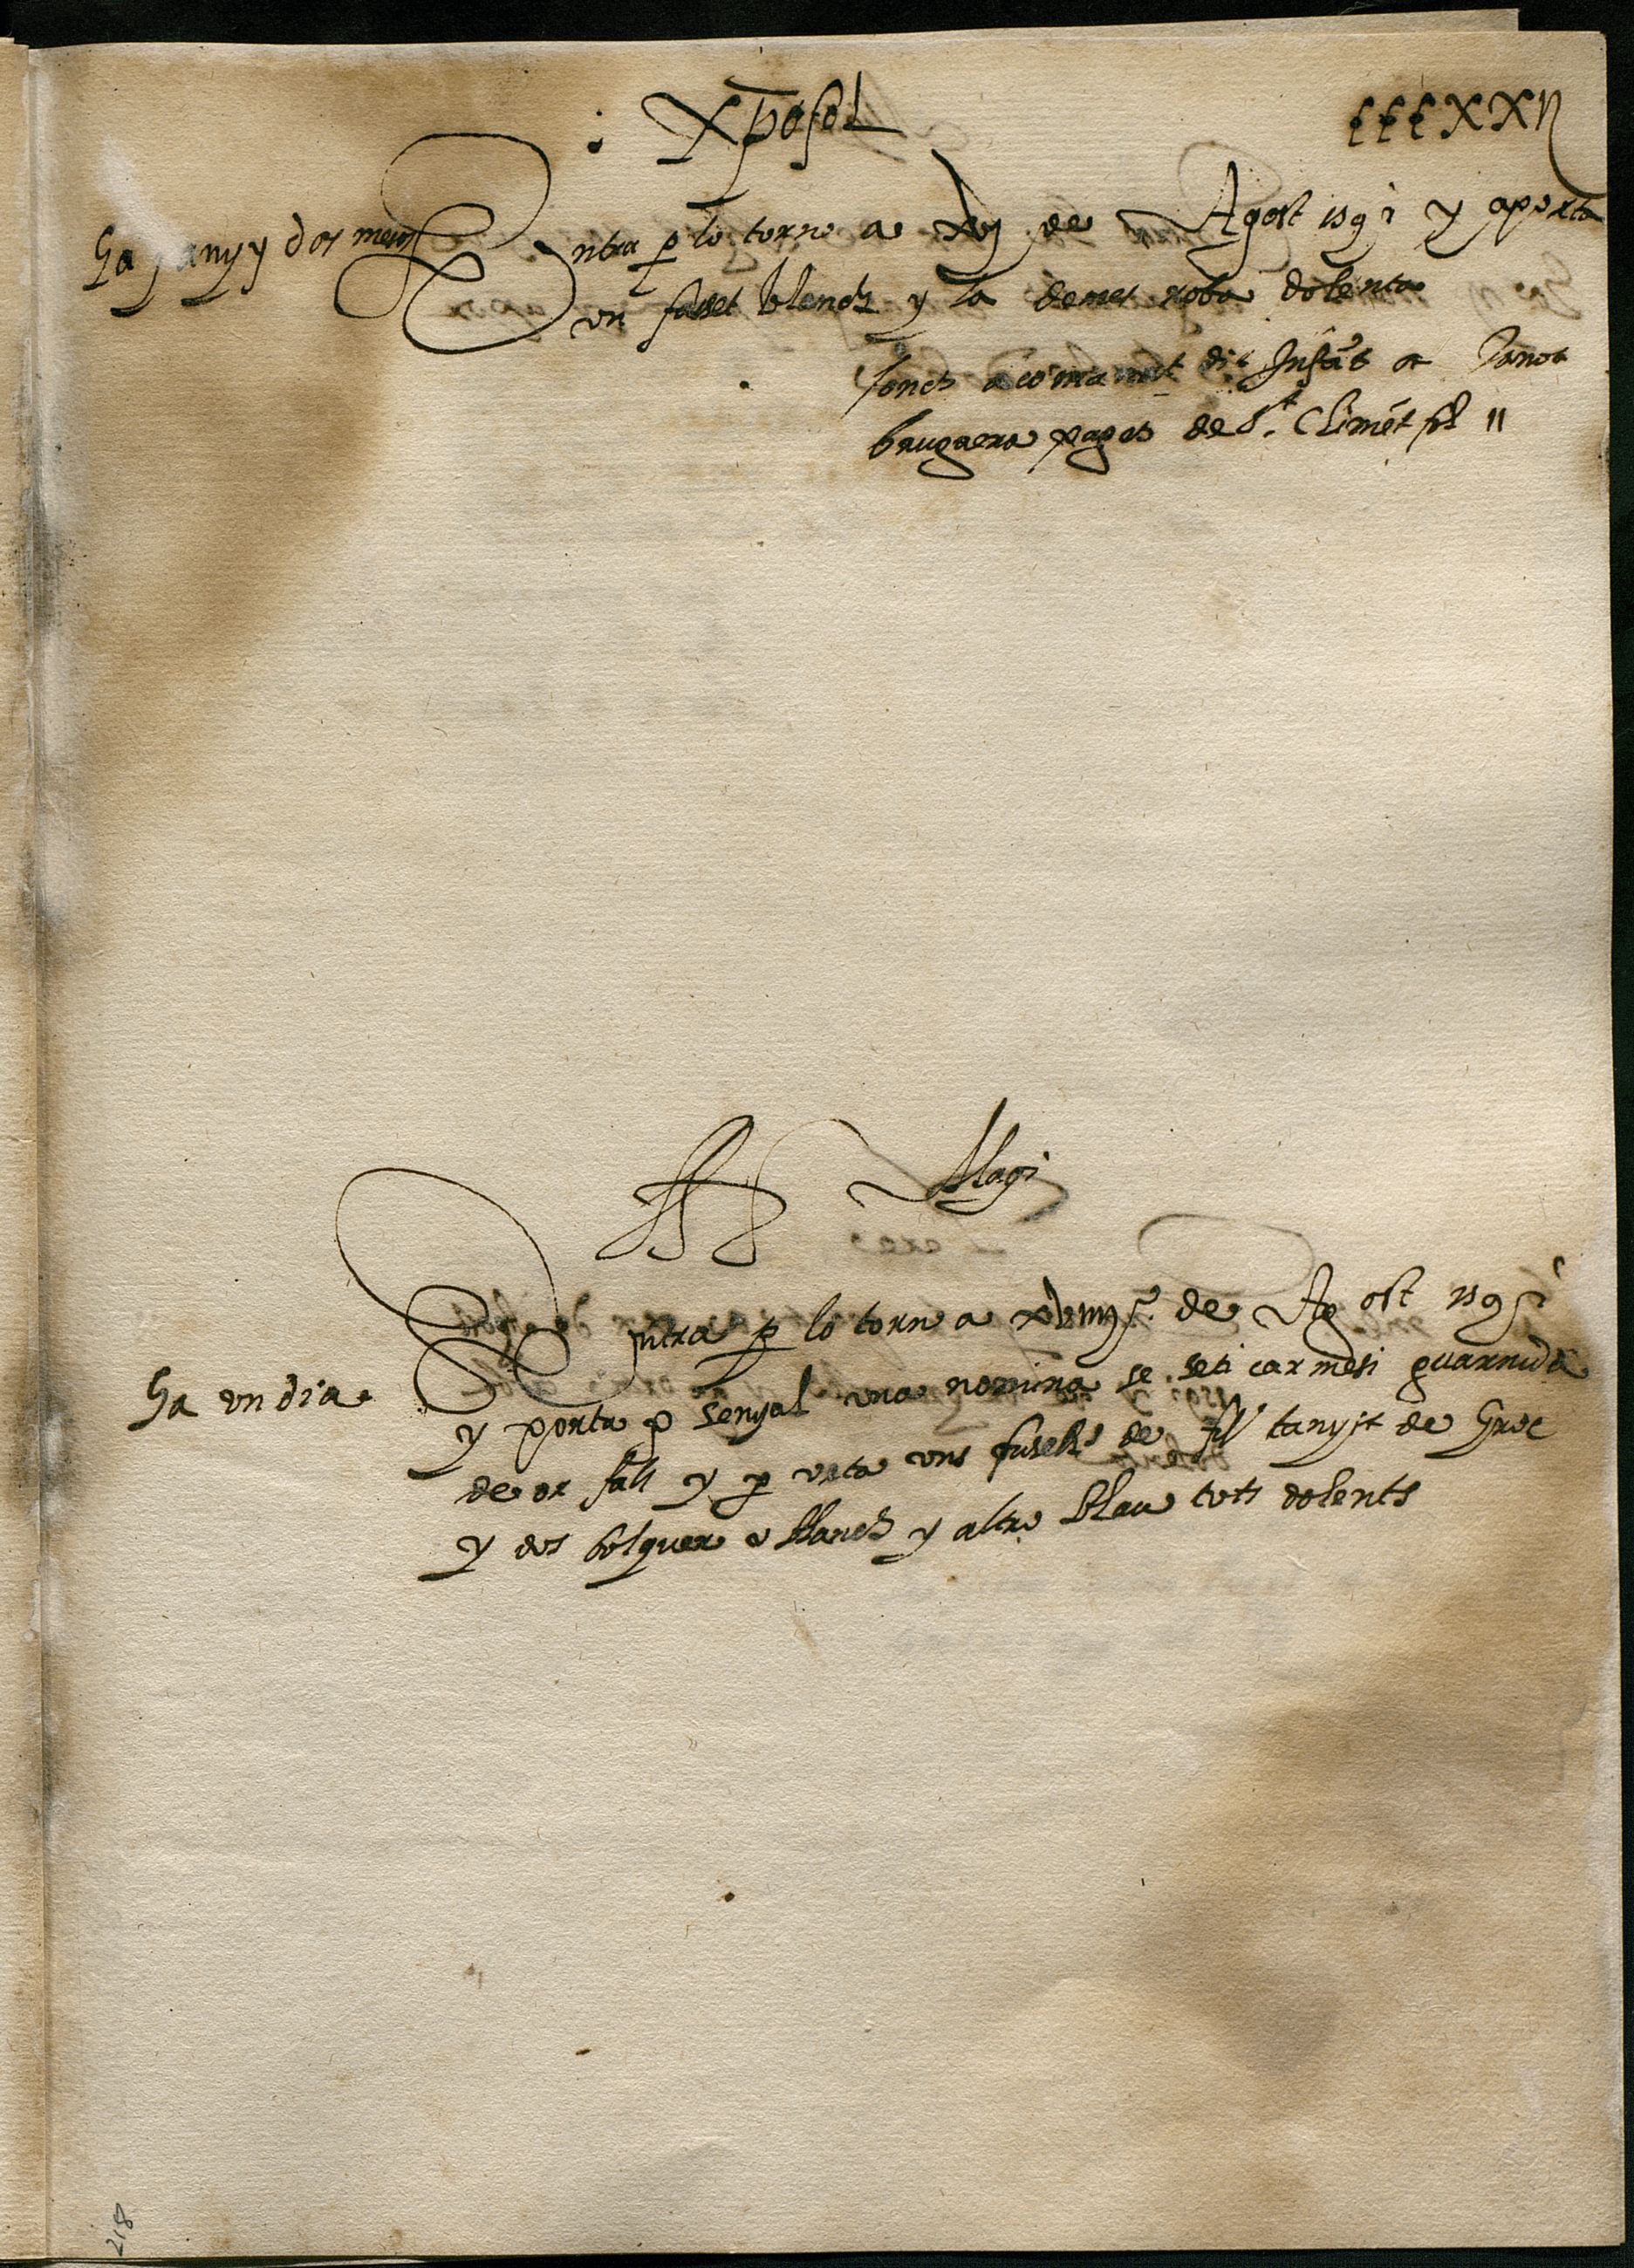 Xpofol
Ha j any y dos mesos
Entra p lo torn a xvj de Agost 1591 y aporta
un fasset blanch y la demes roba dolenta
fonch acomanat dit Infāt a Janot
brugaera pages de St. Climēt fil ll
Magi
Ha un dia
Entra p lo torn a xviiij de Agost 1591
y porta p senyal una nomina de seti carmesi guarnida
de or fals y p veta uns fusells de fil tanyit de groc
y dos bolquers blanch y altre blau tots dolents
218